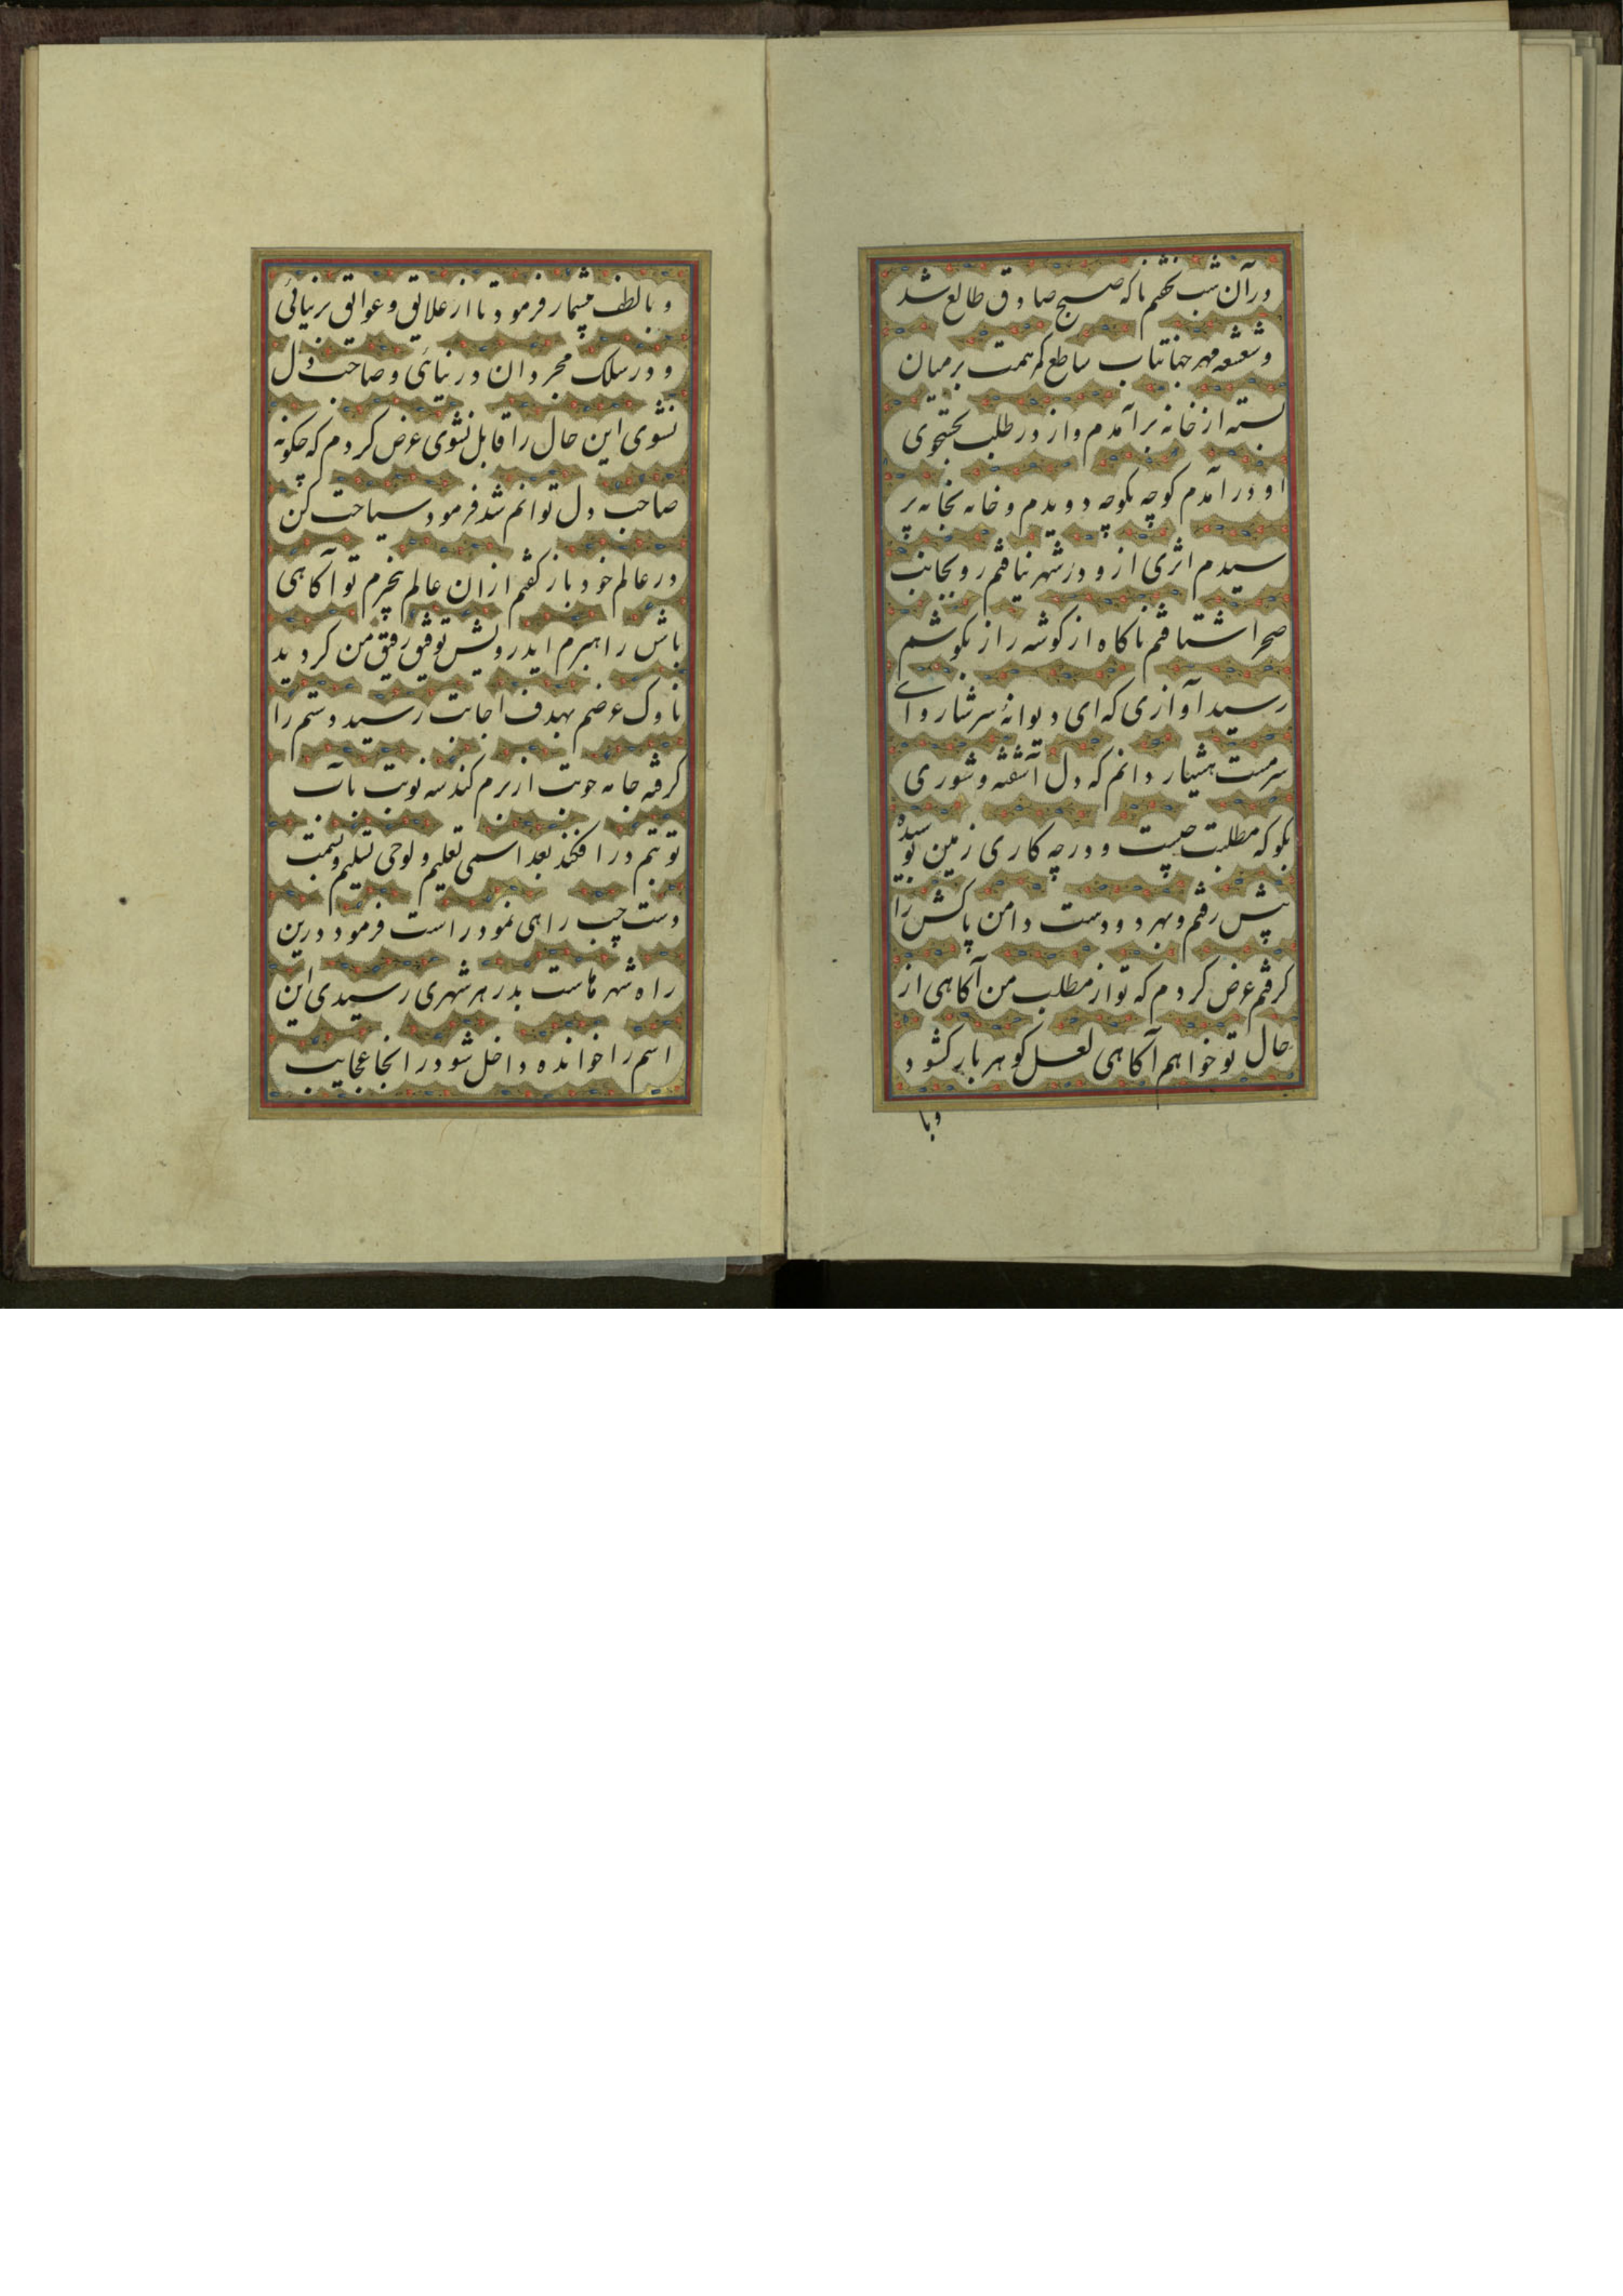 در آن شب نخفتم تا که صبح صادق طالع شد
و شعشعه مهر جهانتاب ساطع کمر همت بر میان
بسته از خانه برآمدم و از در طلب بجستجوی
او درآمدم کوچه بکوچه دویدم و خانه بخانه پر
سیدم اثری از و در شهر نیافتم رو بجانب
صحرا شتافتم ناکاه از کوشه راز بکوشم
رسید آوازی که ای دیوانهٔ سرشار و ای
سرمست هشیار دانم که دل آشفته و شوری
بکو که مطلبت چیست و در چه کاری زمین بوسیده
پیش رفتم و بهر دو دست دامن پاکش را
کرفتم عرض کردم که تو از مطلب من آکاهی از
حال تو خواهم آکاهی لعل کوهر بار کشود
و با
و با لطف بیشمار فرمود تا از علایق و عوایق بر نیائی
و در سلک مجردان در نیائی و صاحب دل
نشوی این حال را قابل نشوی عرض کردم که چکونه
صاحب دل توانم شد فرمود سیاحت کن
در عالم خود باز کفتم از ان عالم بیخبرم تو آکاهی
باش راهبرم ایدرویش توفیق رفیق من کردید
ناوک عرضم بهدف اجابت رسید دستم را
کرفته جامه از برم کند سه نوبت بآب
در افکند بعد اسمی تعلیم و لوحی تسلیم و بسمت
دست چپ راهی نمود راست فرمود درین
راه شهرهاست بدر هر شهری رسیدی این
اسم را خوانده داخل شو در انجا عجایب